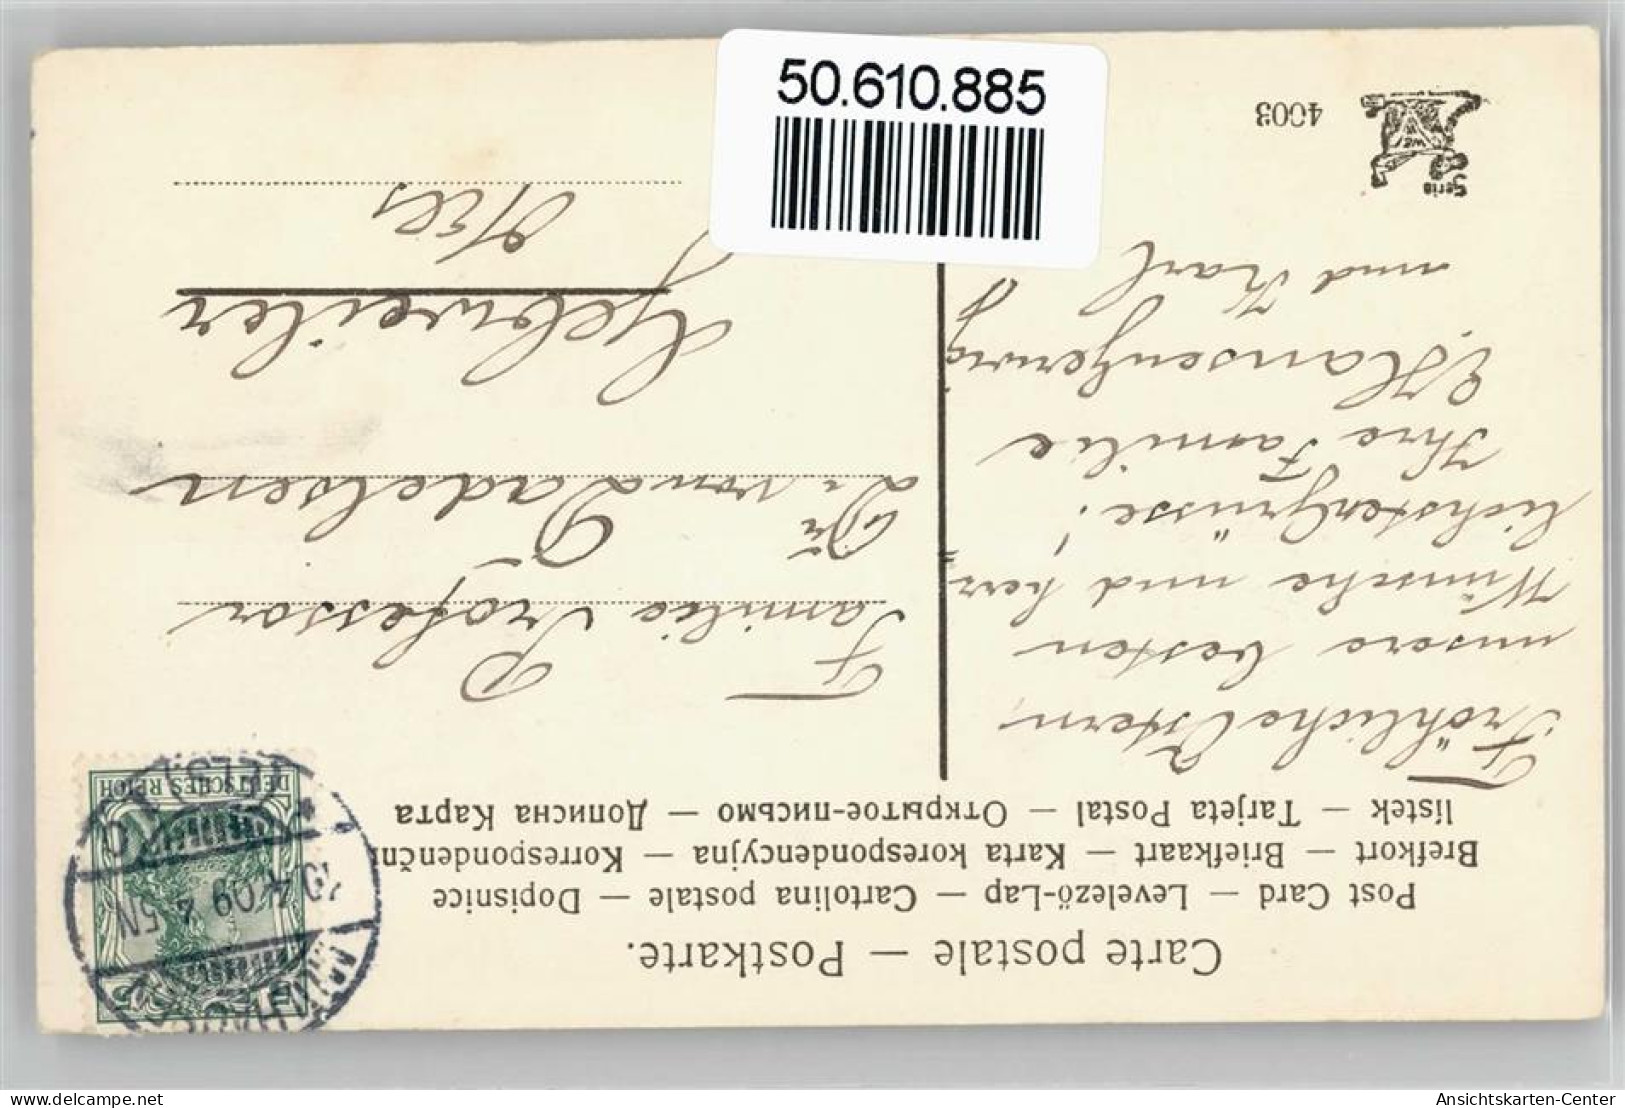 50.610.885
Carte postale — Postkarte.
Post Card — Levelező-Lap — Cartolina postale — Dopisnice
Brefkort — Briefkaart — Karta korespondencyjna — Korrespondenční
lístek — Tarjeta Postal — Открытое-письмо — Дописна Карта
Fröhliche Ostern,
unsere besten
Wünsche und herz=
lichsten Grüsse!
Ihre Familie
und Karl
Serie
W
4003
Familie Professor
Dr von Dadelsen
Gebweiler
DEUTSCHES REICH
5
5
(ELS.)
4.09
4
5N
Ansichtskarten-Center